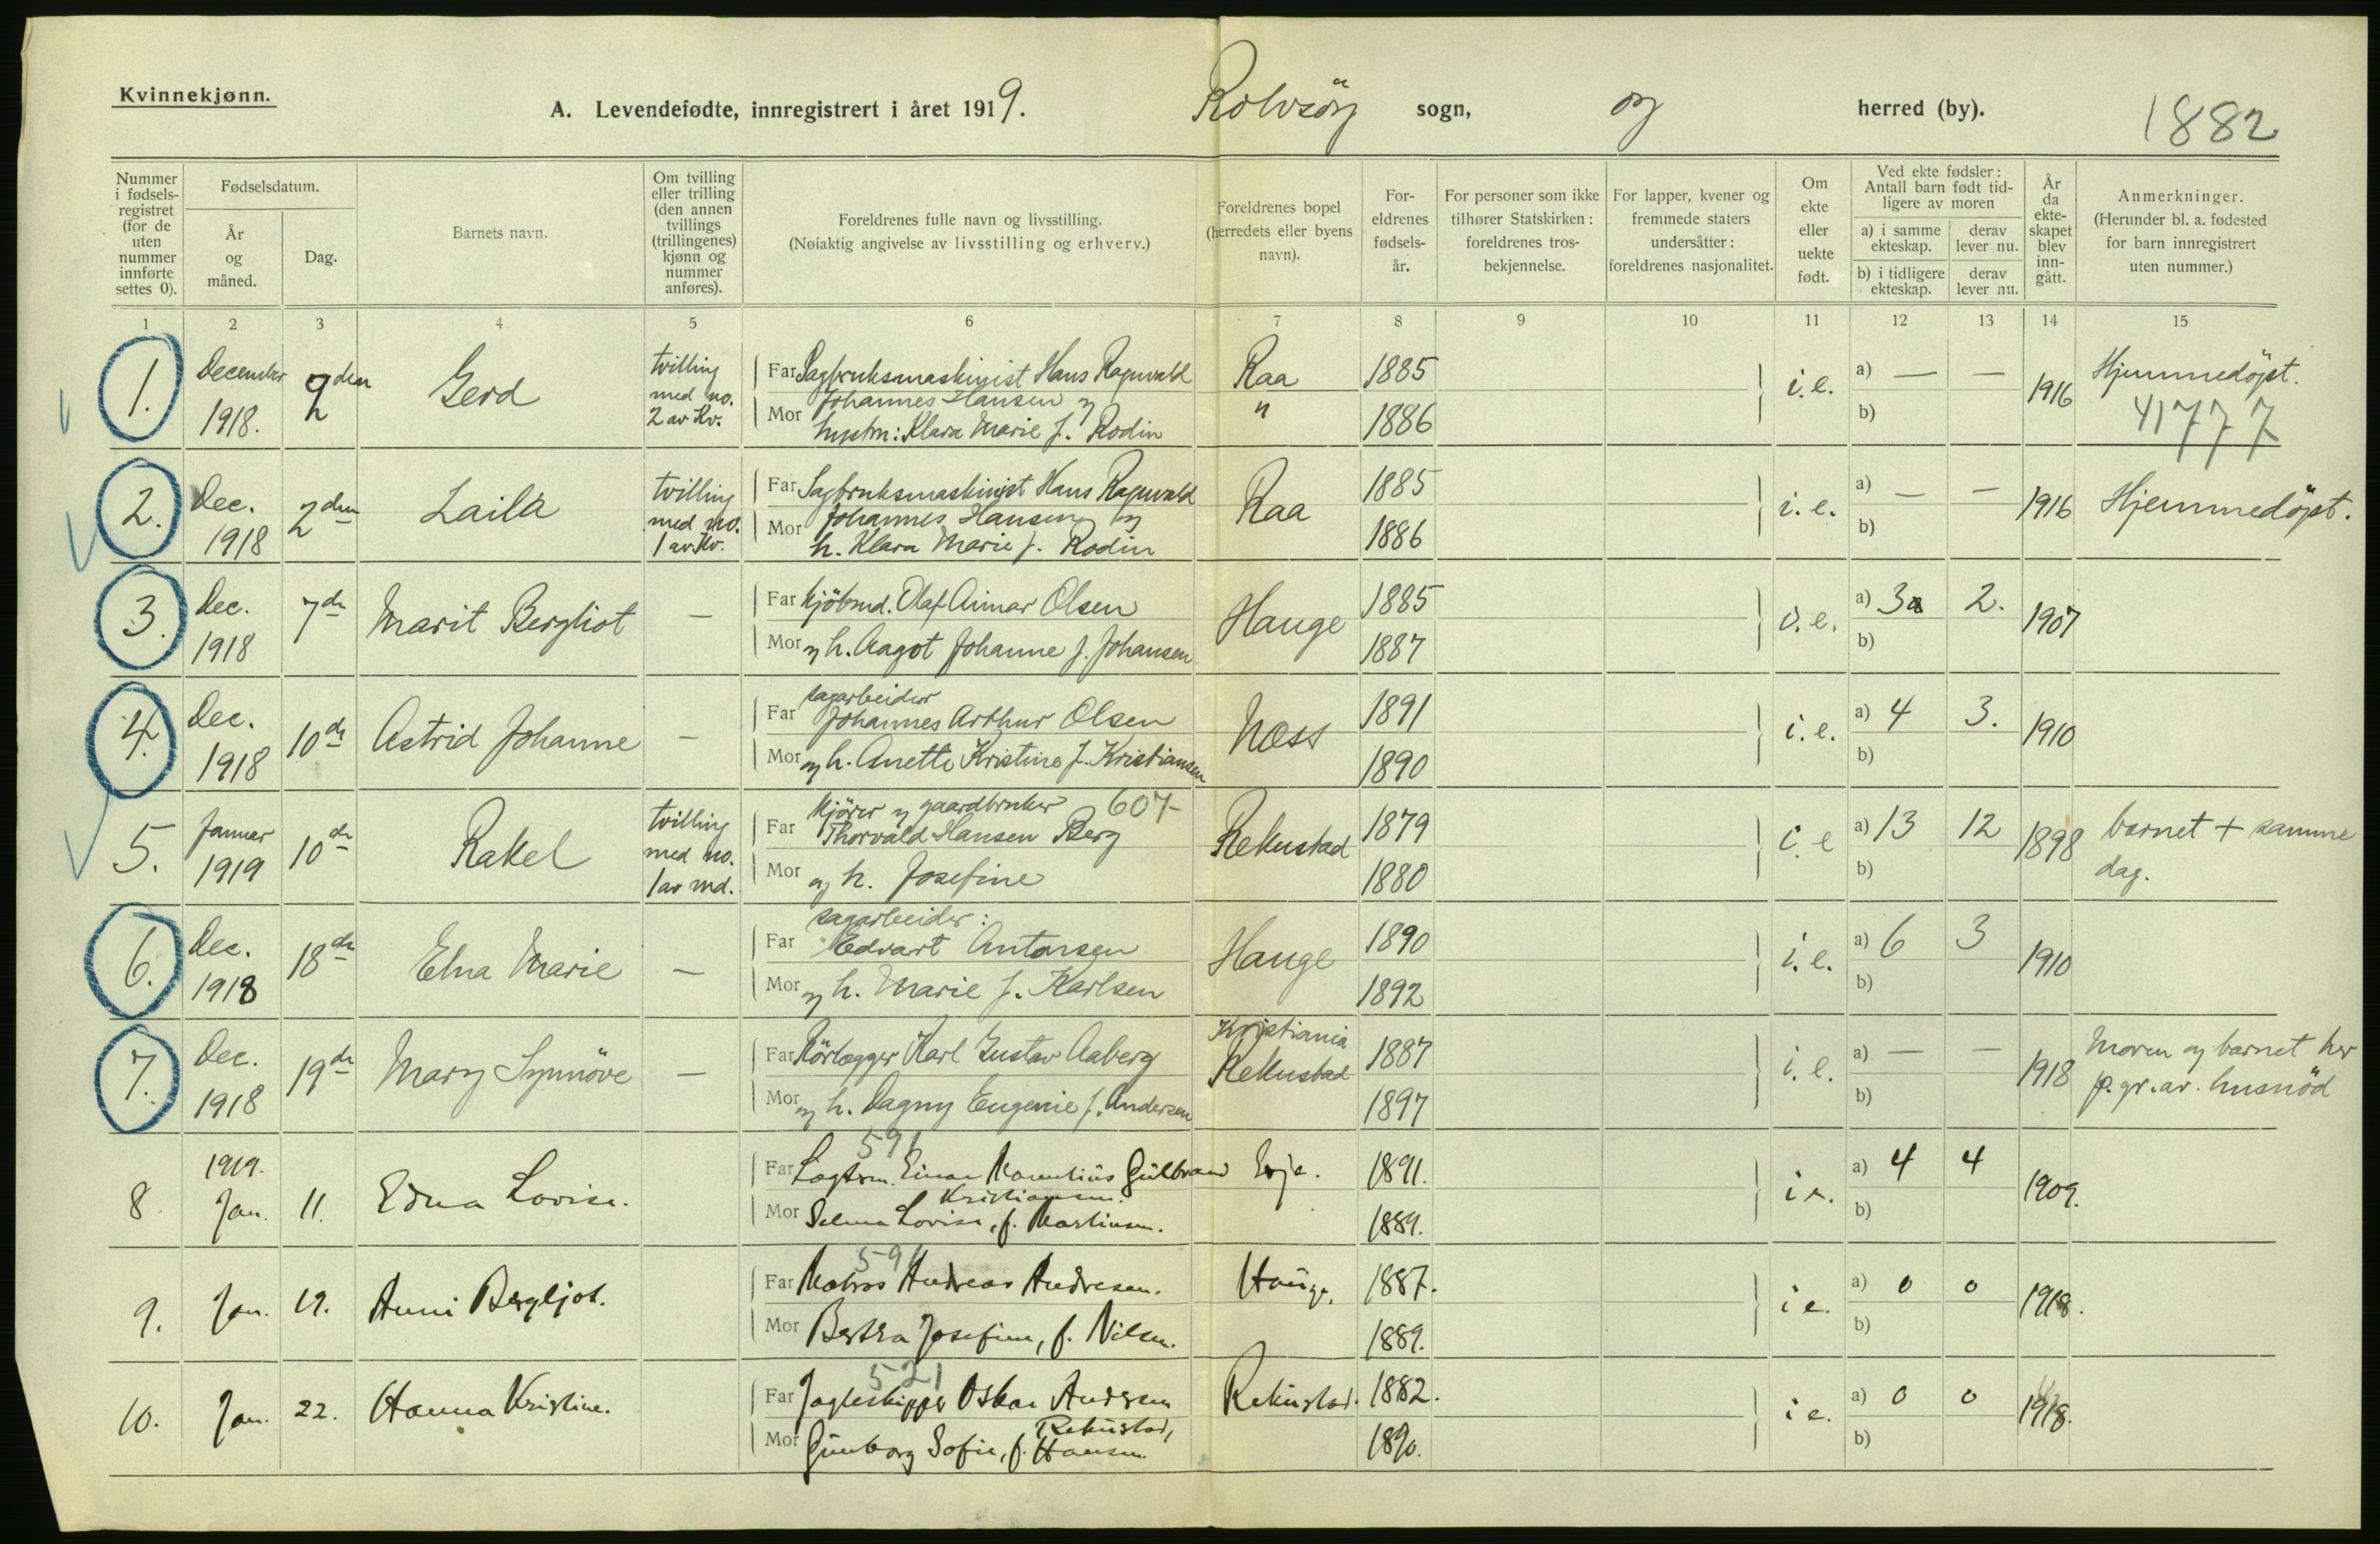 Kvinnekjønn.
A. Levendefødte, innregistrert i året 1919. Rolvsöy sogn, og herred (by). 1882
Nummer i fødsels-registret (for de uten nummer innførte settes 0).
Fødselsdatum.
År og måned.
Dag.
Barnets navn.
Om tvilling eller trilling (den annen tvillings (trillingenes) kjønn og nummer anføres).
Foreldrenes fulle navn og livsstilling.
(Nøiaktig angivelse av livsstilling og erhverv.)
Foreldrenes bopel (herredets eller byens navn).
For-eldrenes fødsels-år.
For personer som ikke tilhører Statskirken: foreldrenes tros-bekjennelse.
For lapper, kvener og fremmede staters undersåtter: foreldrenes nasjonalitet.
Om ekte eller uekte født.
Ved ekte fødsler: Antall barn født tid-ligere av moren
a) i samme ekteskap.
derav lever nu.
b) i tidligere ekteskap.
derav lever nu.
År da ekte-skapet blev inn-gått.
Anmerkninger.
(Herunder bl. a. fødested for barn innregistrert uten nummer.)
1 2 3 4 5 6 7 8 9 10 11 12 13 14 15
1. December 1918. 2den Gerd
tvilling med no. 2 av Kv.
Far Sagbruksmaskinist Hans Ragnvald
Johannes Hansen og
Mor hustru: Klara Marie f. Rodin
Raa " 1885 1886 i.e. a) — — b) 1916
Hjemmedöpt.
41777
2. Dec. 1918 2den Laila
tvilling med no. 1 av Kv.
Far Sagbruksmaskinist Hans Ragnvald
Johannes Hansen og
Mor h. Klara Marie f. Rodin
Raa 1885 1886 i.e. a) — — b) 1916 Hjemmedöpt.
3. Dec. 1918 7de Marit Bergliot —
Far kjöbmd. Olaf Aimar Olsen
Mor og h. Aagot Johanne f. Johansen
Hauge 1885 1887 o.e. a) 3 2. b) 1907
4. Dec. 1918 10de Astrid Johanne —
sagarbeider
Far Johannes Arthur Olsen
Mor og h. Anette Kristine f. Kristiansen
Næss 1891 1890 i.e. a) 4 3. b) 1910
5. Januar 1919 10de Rakel
tvilling med no. 1 av md.
kjörer og gaardbruker 607
Far Thorvald Hansen Berg
Mor og h. Josefine
Rekustad 1879 1880 i.e a) 13 12 b) 1898
barnet + samme dag.
6. Dec. 1918 18de Elna Marie —
sagarbeider:
Far Edvart Antonsen
Mor og h. Marie f. Karlsen
Hauge 1890 1892 i.e. a) 6 3 b) 1910
7. Dec. 1918 19de Mary Synnöve —
Far Rörlægger Karl Gustav Aaberg
Mor og h. Dagny Eugenie f. Andersen
Kristiania
Rekustad 1887 1897 i.e. a) — — b) 1918
Moren og barnet her
p.gr.av. husnöd
8. 1919. Jan. 11. Edna Lovise.
591
Far Einar Gulbrand
Kristiansen.
Mor Selma Lovise, f. Martinsen.
1891. 1889. i e. a) 4 4 b) 1909.
9. Jan. 19. Anni Bergljot.
591
Far Matros Andreas Andresen.
Mor Bertha Josefine, f. Nilsen.
Hauge. 1887. 1889. i e. a) 0 0 b) 1918.
10. Jan. 22. Hanna Kristine.
521
Far Jagteskipper Oskar Andersen
Rekustad,
Mor Gunborg Sofie, f. Hansen.
Rekustad. 1882. 1890. i e. a) 0 0 b) 1918.